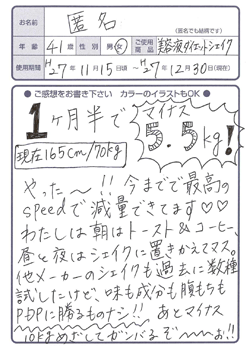 お名前
匿名
(匿名でも結構です)
年齢 41歳 性別 男・女 ご使用商品 美容液ダイエットシェイク
使用期間 H27年11月15日頃 ~ H27年12月30日(現在)
●ご感想をお書き下さい カラーのイラストもOK●
1ヶ月半で マイナス
5.5kg!
現在165cm/70kg
やった~!! 今までで最高の
speedで減量できてます♡♡
わたしは朝はトースト&コーヒー、
昼と夜はシェイクに置きかえてマス。
他メーカーのシェイクも過去に数種
試したけど、味も成分も腹もちも
PbPに勝るものナシ!! あとマイナス
10kgめざしてガンバるぞ~~お!!